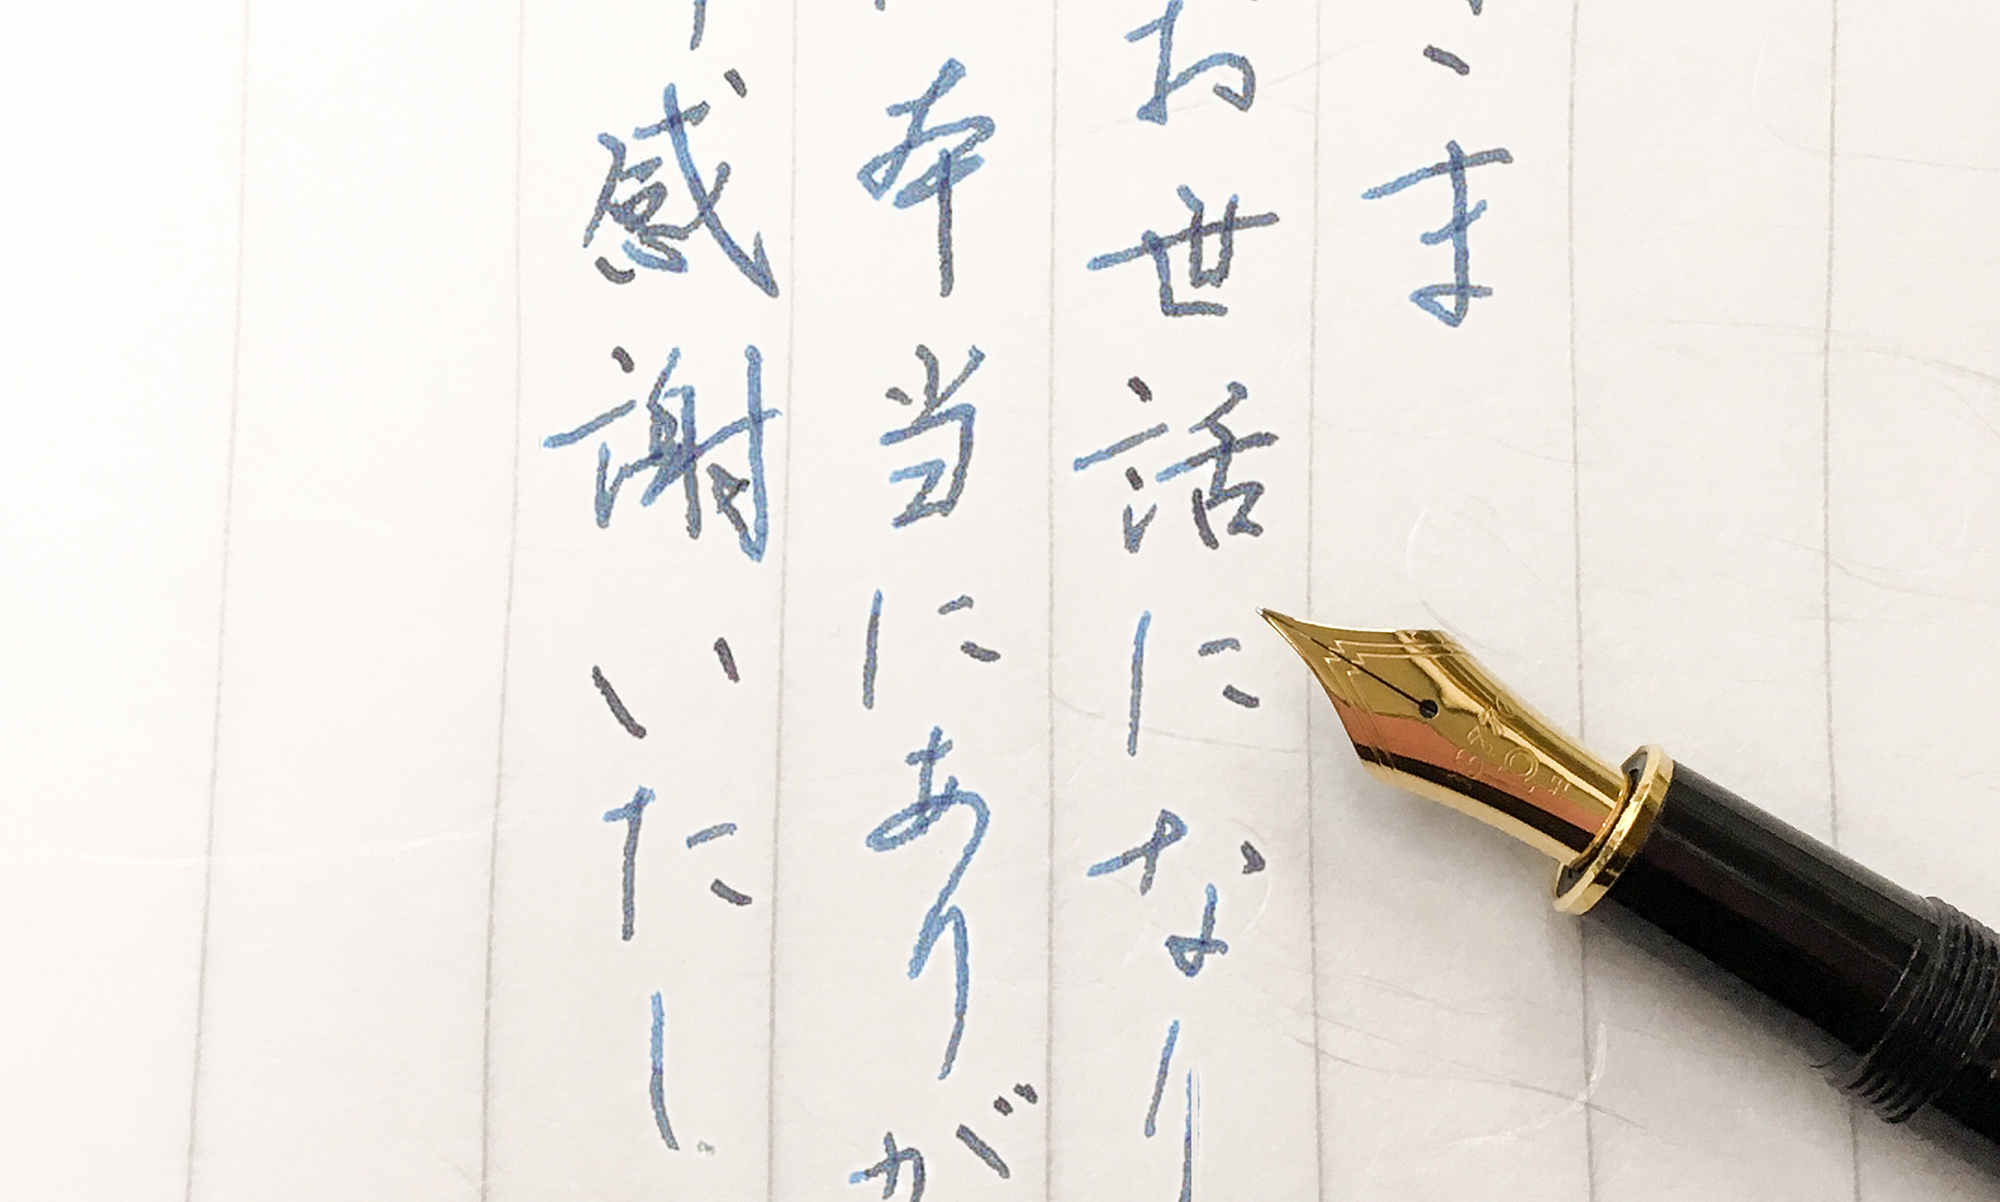 ま
お世話になり
本当にありが
感謝いたし